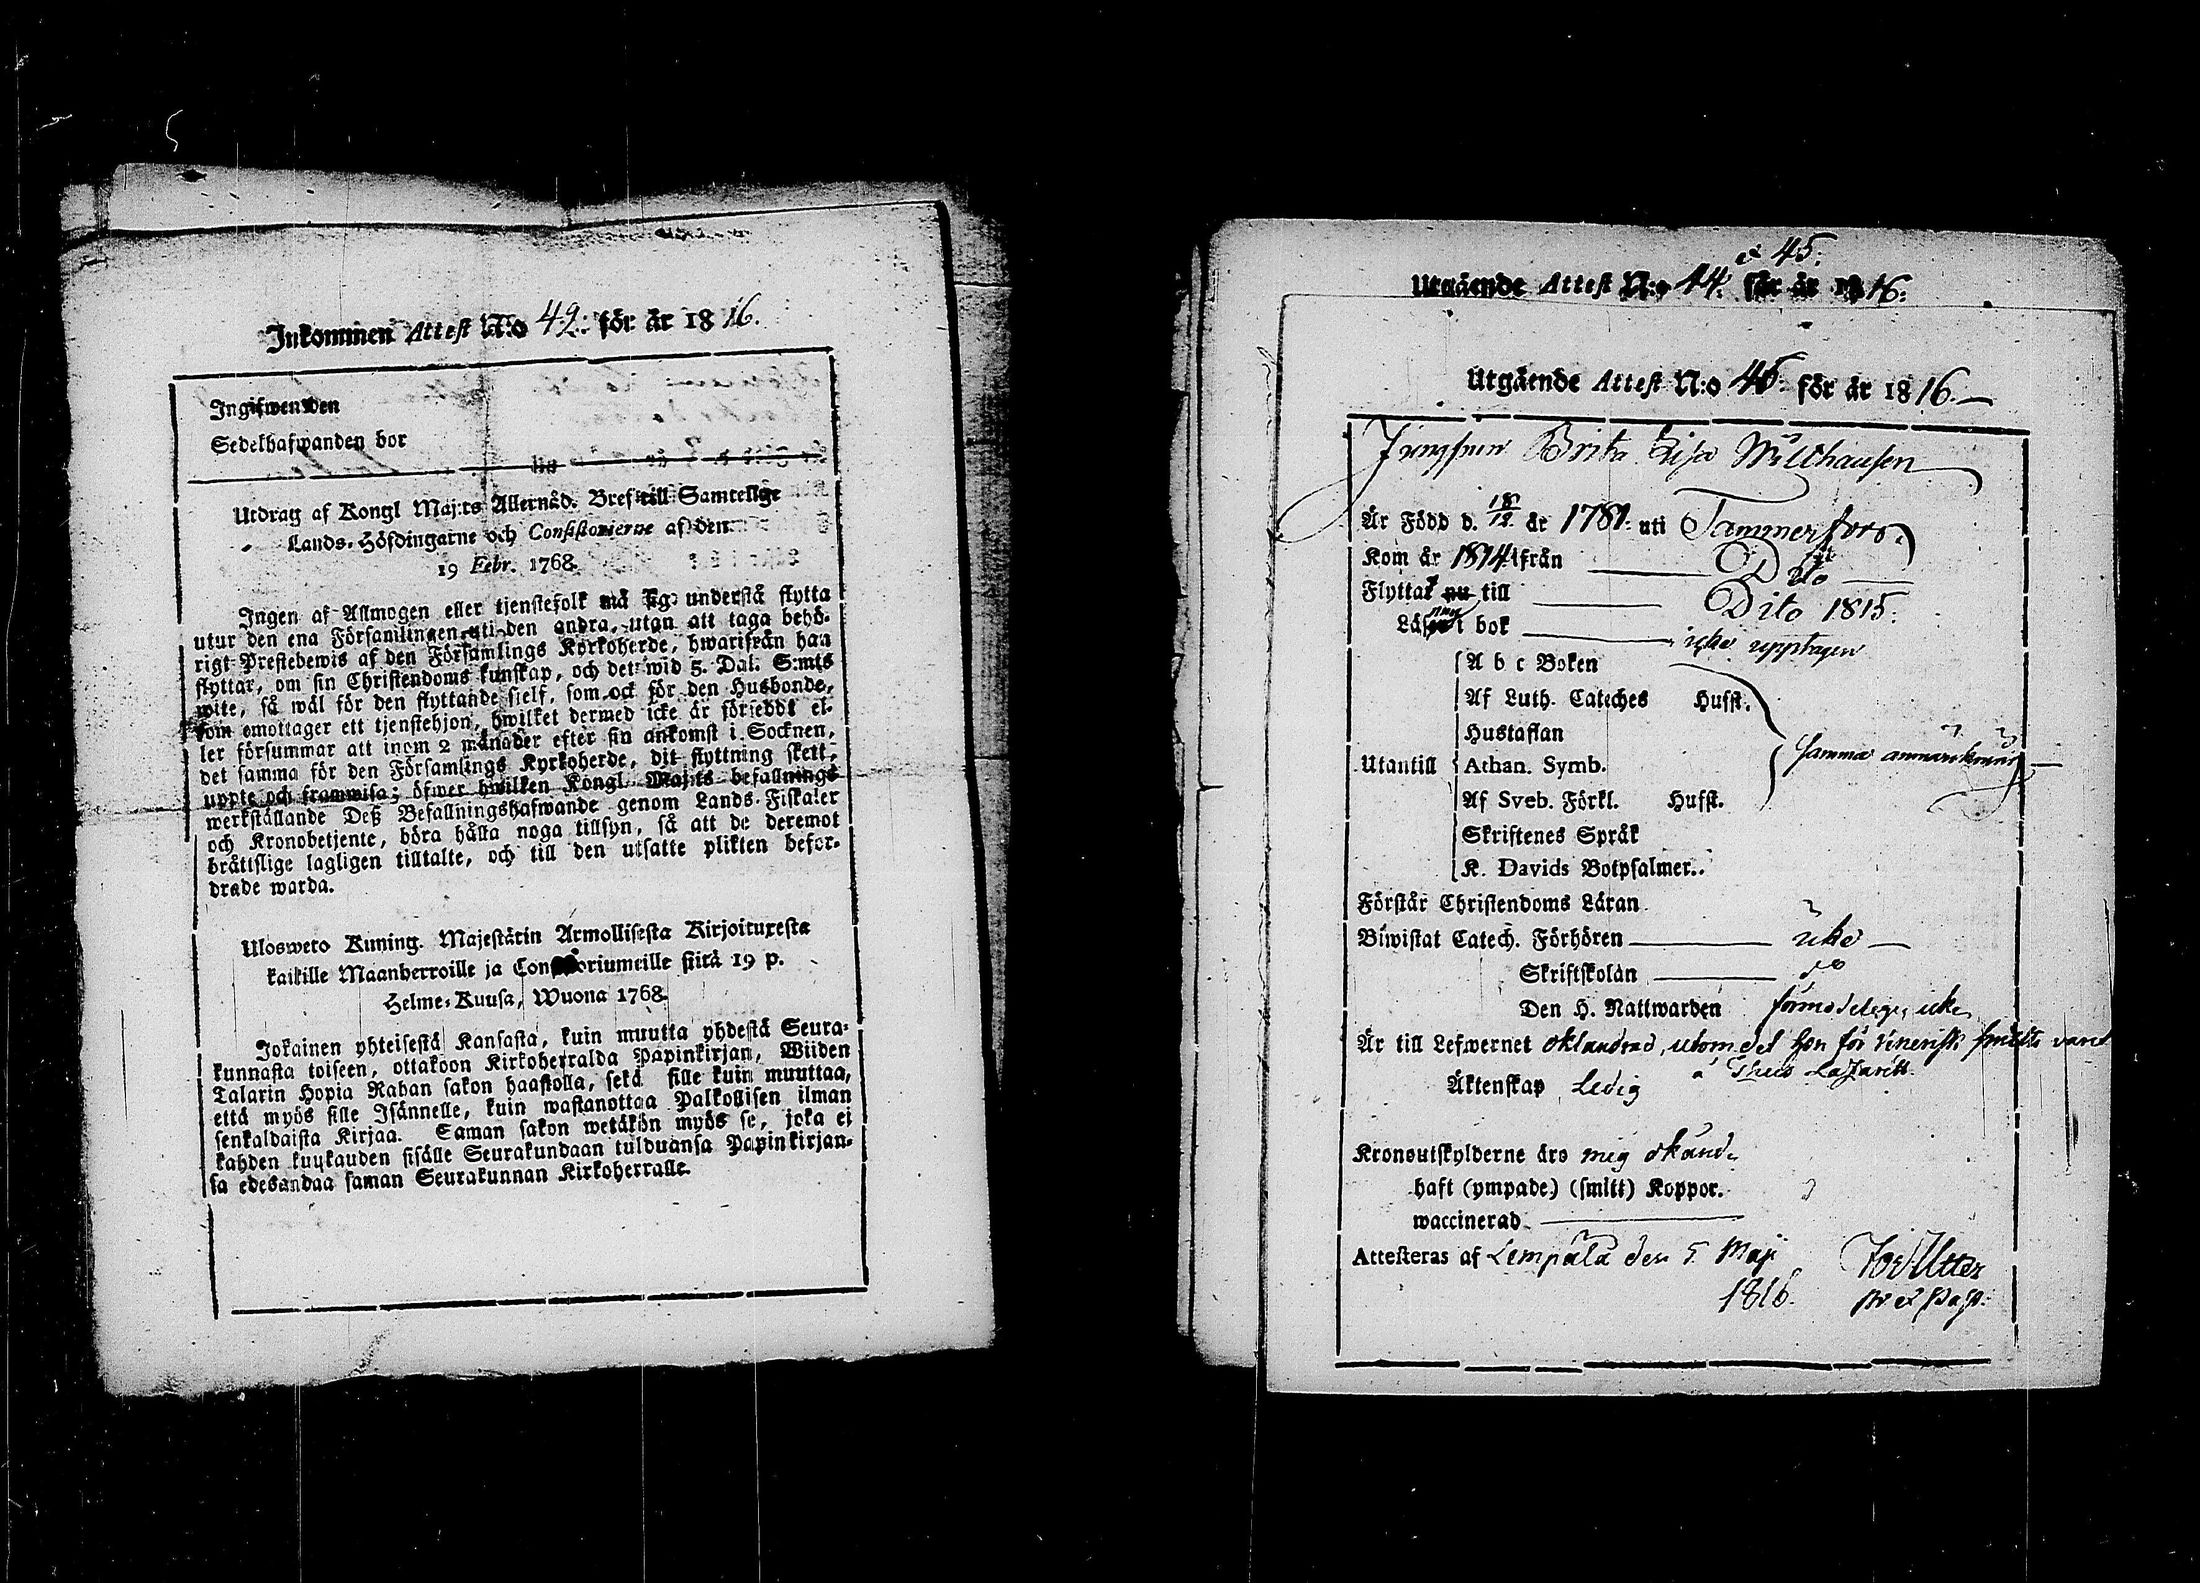 Inkommen Attest N:o 49. för år 1816.
Ingifwen den
Sedelhafwanden bor
Utdrag af Kongl Maj:ts Allernåd. Bref till Samtelige
Lands-Höfdingarne och Consistorierne af den
19 Febr. 1768.
Ingen af Allmogen eller tjenstefolk må sig understå flytta
utur den ena Församlingen uti den andra, utan att taga behö-
rigt Prestebewis af den Församlings Kyrkoherde, hwarifrån han
flyttar, om sin Christendoms kunskap, och det wid 5. Dal. S:mts
wite, så wäl för den flyttande sielf, som ock för den Husbonde,
som emottager ett tjenstehjon, hwilket dermed icke är försedt el-
ler försummar att inom 2 månader efter sin ankomst i Socknen,
det samma för den Församlings Kyrkoherde, dit flyttning skett,
uppte och framwisa; öfwer hwilken Kongl Maj:ts befallnings
werkställande Deß Befallningshafwande genom Lands-Fiskaler
och Kronobetjente, böra hålla noga tillsyn, så att de deremot
bråttslige lagligen tilltalte, och till den utsatte plikten befor-
drade warda.
Ulosweto Kuning. Majestätin Armollisesta Kirjoituxesta
kaikille Maanherroille ja Consistoriumeille siitä 19 p.
Helme-Kuusa, Wuona 1768.
Jokainen yhteisestä Kansasta, kuin muutta yhdestä Seura-
kunnasta toiseen, ottakoon Kirkoherralda Papinkirjan, Wiiden
Talarin Hopia Rahan sakon haastolla, sekä sille kuin muuttaa,
että myös sille Isännelle, kuin wastanottaa Palkollisen ilman
senkaldaista Kirjaa. Saman sakon wetäkön myös se, joka ei
kahden kuukauden sisälle Seurakundaan tulduansa Papinkirjan-
sa edesandaa saman Seurakunnan Kirkoherralle.
& 45.
Utgående Attest N:o 44. för år 1816.
Utgående Attest N:o 45. för år 1816.
Jungfrun Brita Lisa Willhausen
Är Född d. 18/12 år 1781. uti Tammerfors.
Kom år 1814 ifrån Dito
Flyttat nu till Dito 1815.
Läser i bok icke upptagen
A b c Boken
Af Luth. Cateches Husst.
Hustaflan
Utantill Athan. Symb. samma anmärkning
Af Sveb. Förkl. Husst.
Skriftenes Språk
K. Davids Botpsalmer..
Förstår Christendoms Läran
Biwistat Catech. Förhören icke
Skriftskolan do
Den H. Nattwarden förmodeligen icke
Är till Lefwernet oklandrad, utom det hon för venerisk smitta varit
å Theds Lazarett.
Äktenskap Ledig
Kronoutskylderne äro mig okända
haft (ympade) (smitt) Koppor.
waccinerad
Attesteras af Lempälä den 5 Maji
1816.